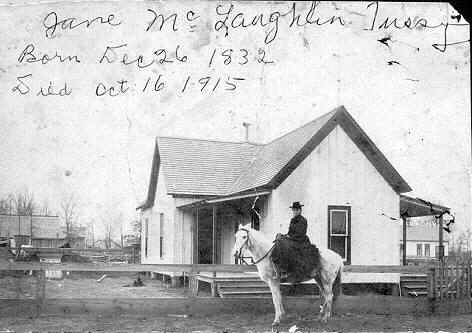 Jane Mc Laughlin Tussy
Born Dec 26 1832
Died Oct 16 1915